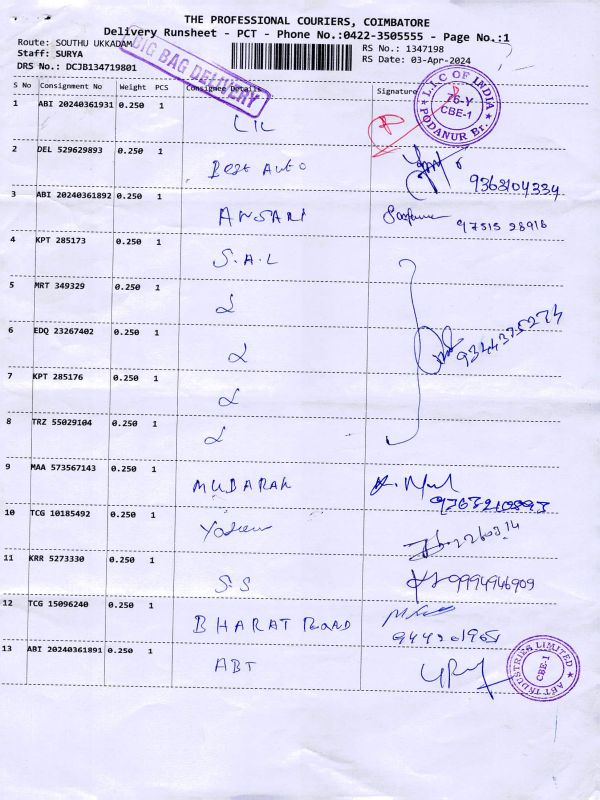 THE PROFESSIONAL COURIERS, COIMBATORE
Delivery Runsheet - PCT - Phone No.:0422-3505555 - Page No.:1
Route: SOUTHU UKKADAM
Staff: SURYA
DRS No.: DCJB134719801
BIG BAG DELIVERY
RS No.: 1347198
RS Date: 03-Apr-2024
S No Consignment No Weight PCS Consignee Details Signature
L.I.C OF INDIA
CBE-1
PODANUR Br.
1 ABI 20240361931 0.250 1 LIC
2 DEL 529629893 0.250 1 Best Auto 9363104334
3 ABI 20240361892 0.250 1 ANSARI 97515 28916
4 KPT 285173 0.250 1 S.A.L
5 MRT 349329 0.250 1
6 EDQ 23267402 0.250 1 9344375274
7 KPT 285176 0.250 1
8 TRZ 55029104 0.250 1
9 MAA 573567143 0.250 1 MUBARAK
10 TCG 10185492 0.250 1
11 KRR 5273330 0.250 1 S.S 9994946909
12 TCG 15096240 0.250 1 BHARAT ROAD
13 ABI 20240361891 0.250 1 ABT
ABT INDUSTRIES LIMITED
CBE-1